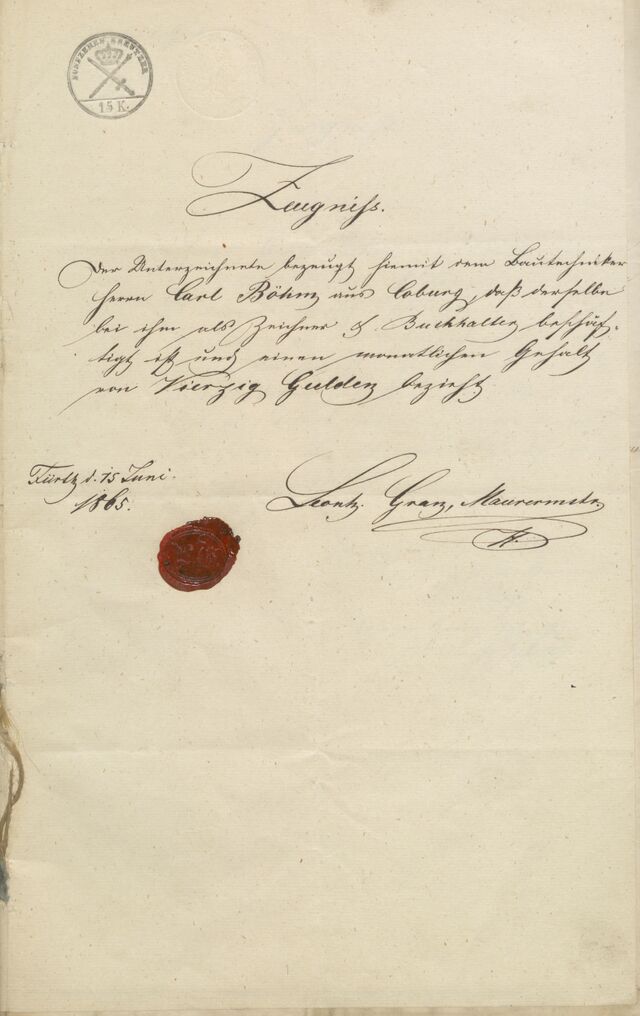 FÜNFZEHEN KREUTZER
15 K.
Zeugniss.
Der Unterzeichnete bezeugt hiemit dem Bautechniker
Herrn Carl Böhm aus Coburg, daß derselbe
bei ihm als Zeichner & Buchhalter beschäf-
tigt ist und einen monatlichen Gehalt
von Vierzig Gulden bezieht.
Fürth d. 15 Juni
1865.
Gran, Maurermstr.